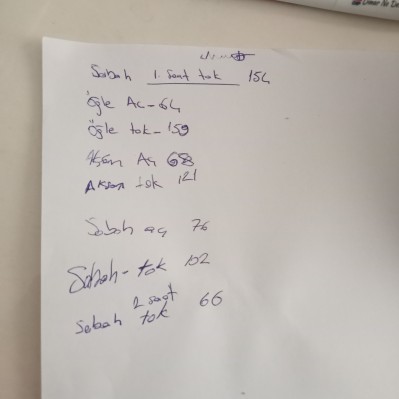 Sabah 1. saat tok 154
Öğle Aç-64
Öğle tok-159
Akşam Aç 68
Akşam tok 121
Sabah aç 76
Sabah-tok 102
Sabah 2 saat tok 66